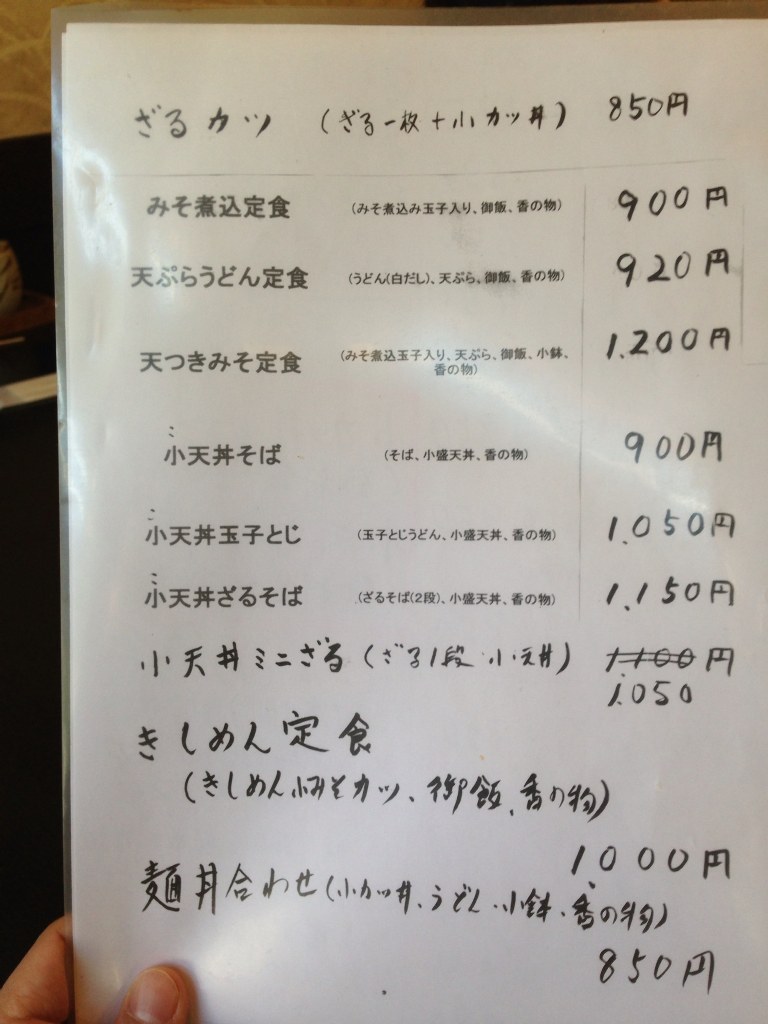 ざるカツ (ざる一枚+小カツ丼) 850円
みそ煮込定食 (みそ煮込み玉子入り、御飯、香の物) 900円
天ぷらうどん定食 (うどん(白だし)、天ぷら、御飯、香の物) 920円
天つきみそ定食 (みそ煮込玉子入り、天ぷら、御飯、小鉢、 1.200円
香の物)
ミニ
小天丼そば (そば、小盛天丼、香の物) 900円
ミニ
小天丼玉子とじ (玉子とじうどん、小盛天丼、香の物) 1.050円
ミニ
小天丼ざるそば (ざるそば(2段)、小盛天丼、香の物) 1.150円
小天丼ミニざる (ざる1段・小天丼) 1.100円
1.050
きしめん定食
(きしめん小みそカツ、御飯、香の物)
1.000円
麺丼合わせ(小カツ丼、うどん、小鉢、香の物)
850円